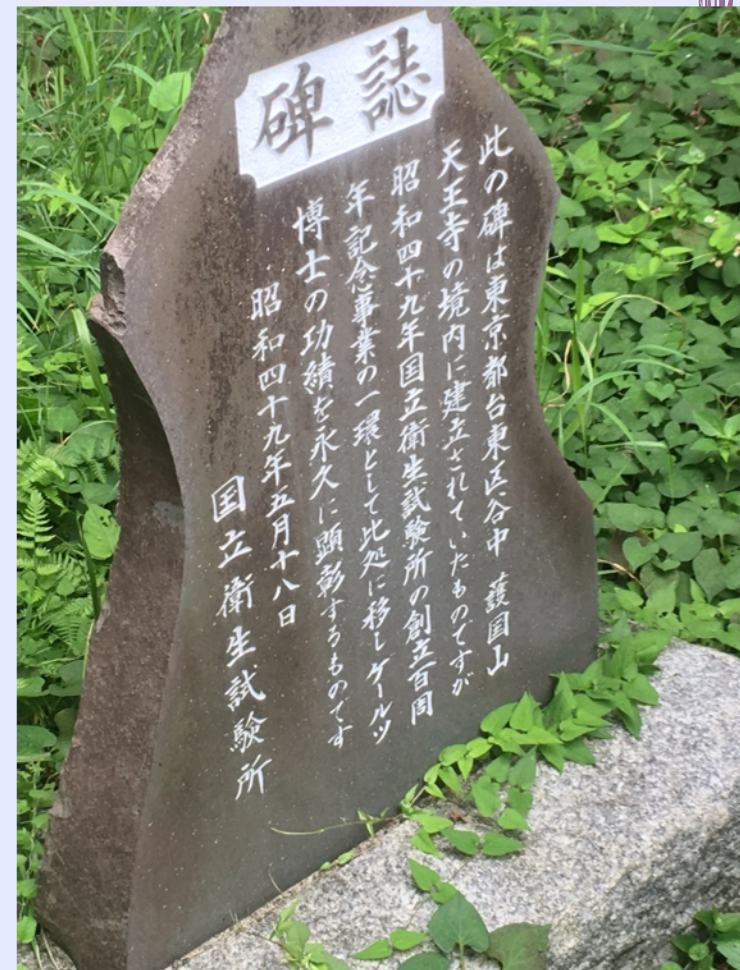 碑誌
此の碑は東京都台東区谷中 護国山
天王寺の境内に建立されていたものですが
昭和四十九年国立衛生試験所の創立百周
年記念事業の一環として此処に移しゲールツ
博士の功績を永久に顕彰するものです
昭和四十九年五月十八日
国立衛生試験所